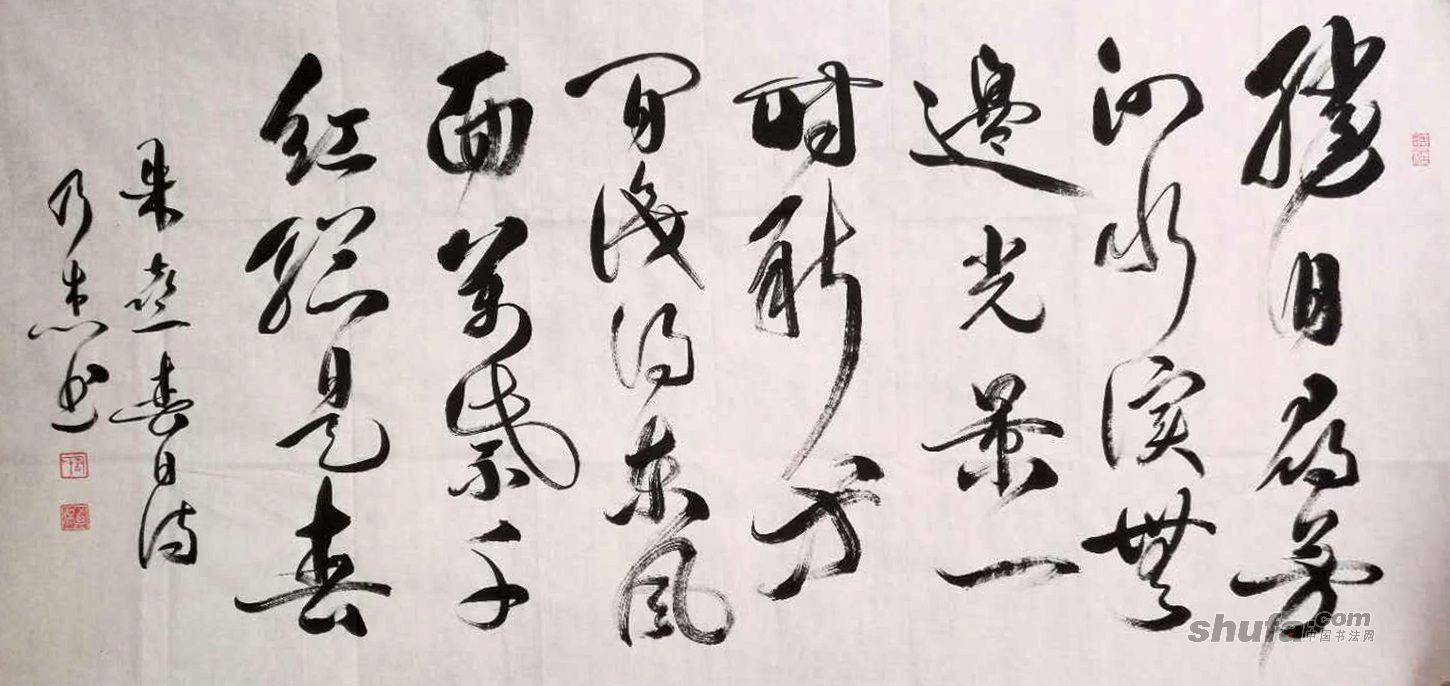 勝日尋芳
泗水濱無
邊光景一
時新等
閒識得東風
面萬紫千
紅總是春
朱熹春日詩
乃杰书
shufa.com
中国书法网